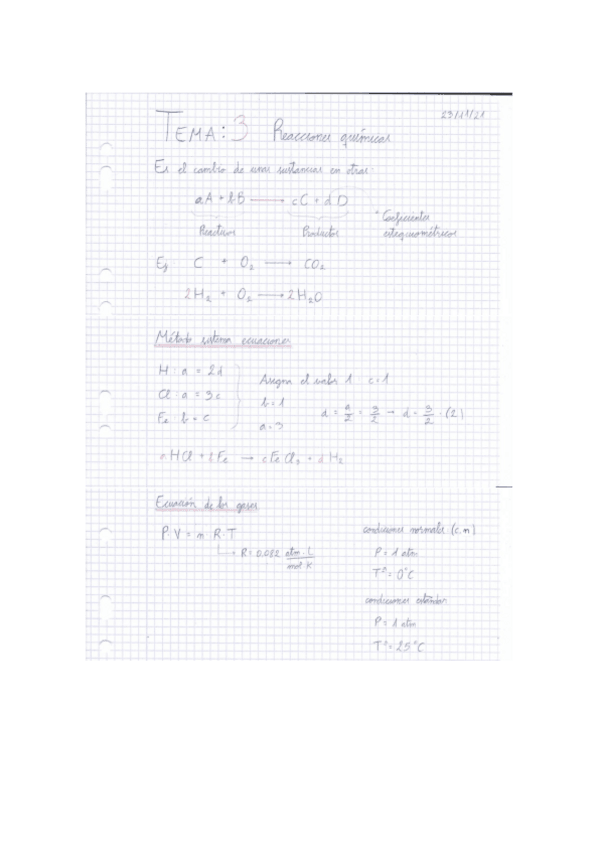 23/11/21
TEMA: 3 Reacciones químicas
Es el cambio de unas sustancias en otras.
aA + bB → cC + dD
Reactivos Productos
* Coeficientes
estequiométricos
Ej: C + O₂ → CO₂
2H₂ + O₂ → 2H₂O
Método sistema ecuaciones
H: a = 2d
Cl: a = 3c
Fe: b = c
Asigna el valor 1 : c=1
b=1
a=3
d = a/2 = 3/2 → d = 3/2 · (2)
aHCl + bFe → cFeCl₃ + dH₂
Ecuación de los gases
P·V = n R·T
R = 0.082 atm·L / mol K
condiciones normales (c.n)
P = 1 atm
Tª = 0°C
condiciones estándar
P = 1 atm
Tª = 25°C